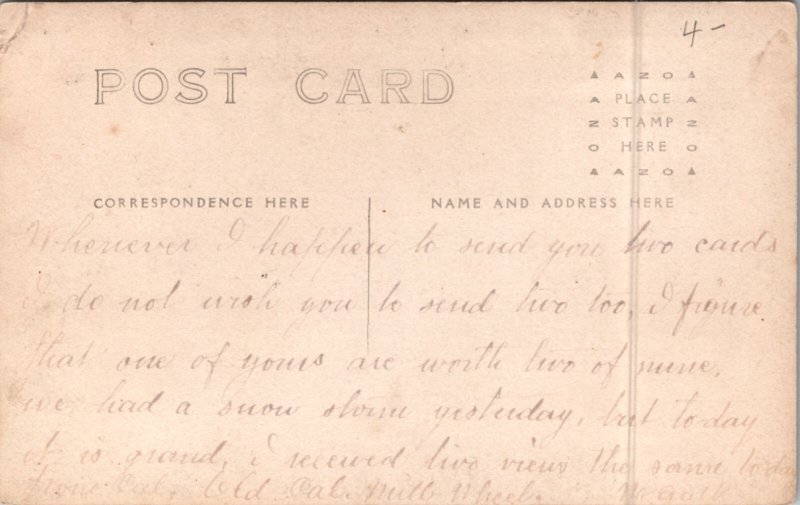 4-
POST CARD
▲ A Z O ▲
A PLACE A
Z STAMP Z
O HERE O
▲ A Z O ▲
CORRESPONDENCE HERE
NAME AND ADDRESS HERE
Whenever I happen to send you two cards
I do not wish you to send two too, I figure
that one of yours are worth two of mine.
we had a snow storm yesterday, but today
it is grand, I received two views the same today
from Cal, Old Cal. Mill Wheel,